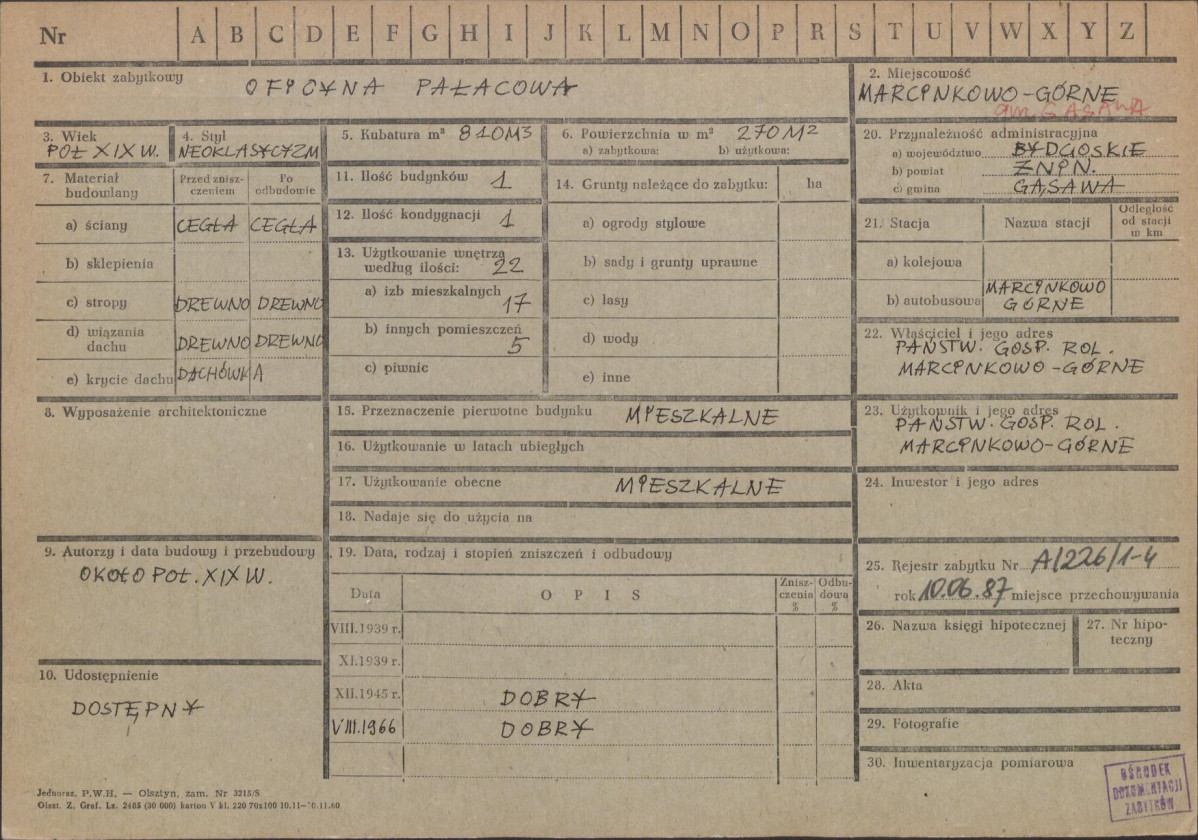 Nr A B C D E F G H I J K L M N O P R S T U V W X Y Z
1. Obiekt zabytkowy OFICYNA PAŁACOWA
2. Miejscowość
MARCINKOWO-GÓRNE
gm. GĄSAWA
3. Wiek
POŁ XIX W.
4. Styl
NEOKLASYCYZM
5. Kubatura m³ 810M3
6. Powierzchnia w m² 270 M²
a) zabytkowa: b) użytkowa:
7. Materiał budowlany
Przed znisz-
czeniem
Po
odbudowie
a) ściany CEGŁA CEGŁA
b) sklepienia
c) stropy DREWNO DREWNO
d) wiązania
dachu DREWNO DREWNO
e) krycie dachu DACHÓWKA
8. Wyposażenie architektoniczne
9. Autorzy i data budowy i przebudowy
OKOŁO POŁ. XIX W.
10. Udostępnienie
DOSTĘPNY
11. Ilość budynków 1
12. Ilość kondygnacji 1
13. Użytkowanie wnętrza
według ilości: 22
a) izb mieszkalnych
17
b) innych pomieszczeń
5
c) piwnic
14. Grunty należące do zabytku: ha
a) ogrody stylowe
b) sady i grunty uprawne
c) lasy
d) wody
e) inne
15. Przeznaczenie pierwotne budynku MIESZKALNE
16. Użytkowanie w latach ubiegłych
17. Użytkowanie obecne MIESZKALNE
18. Nadaje się do użycia na
19. Data, rodzaj i stopień zniszczeń i odbudowy
Data OPIS
Znisz-
czenia
%
Odbu-
dowa
%
VIII.1939 r.
XI.1939 r.
XII.1945 r. DOBRY
VIII.1966 DOBRY
20. Przynależność administracyjna
a) województwo BYDGOSKIE
b) powiat ŻNIN.
c) gmina GĄSAWA
21. Stacja Nazwa stacji
Odległość
od stacji
w km
a) kolejowa
b) autobusowa MARCINKOWO
GÓRNE
22. Właściciel i jego adres
PAŃSTW. GOSP. ROL.
MARCINKOWO-GÓRNE
23. Użytkownik i jego adres
PAŃSTW. GOSP. ROL.
MARCINKOWO-GÓRNE
24. Inwestor i jego adres
25. Rejestr zabytku Nr A/226/1-4
rok 10.06.87 miejsce przechowywania
26. Nazwa księgi hipotecznej
27. Nr hipo-
teczny
28. Akta
29. Fotografie
30. Inwentaryzacja pomiarowa
OŚRODEK
DOKUMENTACJI
ZABYTKÓW
Jednoraz. P.W.H. — Olsztyn, zam. Nr 3215/S
Olszt. Z. Graf. Lz. 2485 (30 000) karton V kl. 220 70x100 10.11—